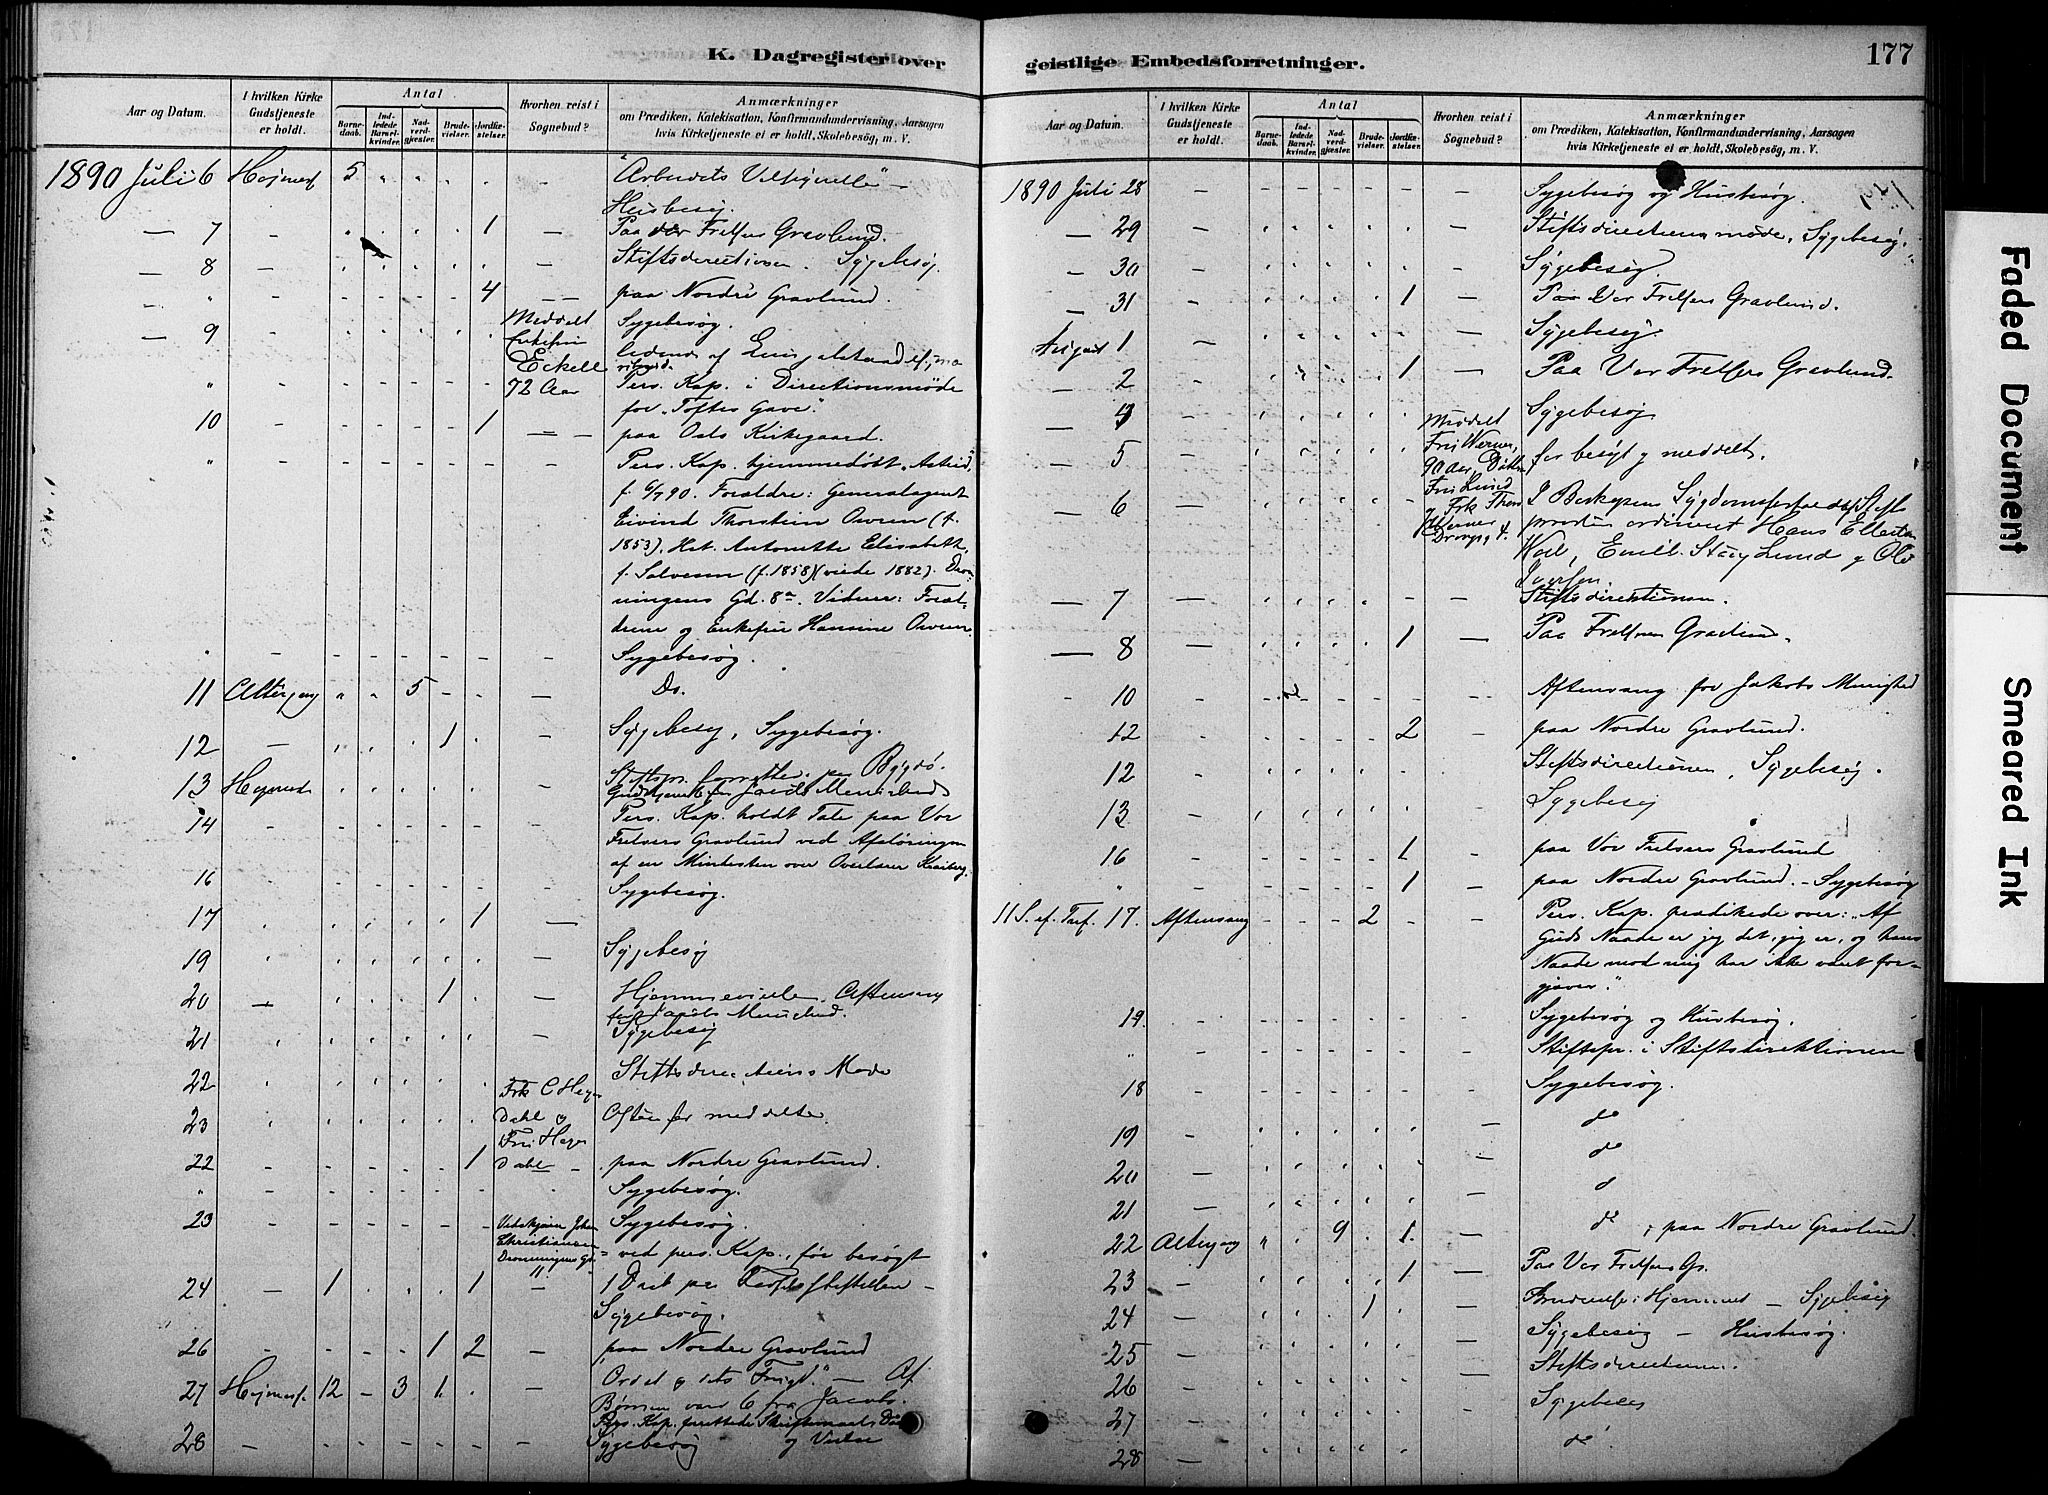 K. Dagregister over
geistlige Embedsforretninger.
177
Aar og Datum.
I hvilken Kirke Gudstjeneste er holdt.
Antal
Barnedaab.
Indledede Barselkvinder.
Nadverdgjester.
Brudevielser.
Jordfæstelser.
Hvorhen reist i Sognebud?
Anmærkninger
om Prædiken, Katekisation, Konfirmandundervisning, Aarsagen
hvis Kirketjeneste ei er holdt, Skolebesøg, m. V.
1890 Juli 6 5 "Arbeidets Velsignelse" –
Husbesøg.
7 1 Paa Vor Frelsers Gravlund.
8 Stiftsdirectionen. Sygebesøg.
" 4 paa Nordre Gravlund.
9 Meddelt Enkefru Eckell 72 Aar Sygebesøg.
" Pers. Kap. i Directionsmøde
for "Toftes Gave".
10 1 paa Oslo Kirkegaard.
" Pers. Kap. hjemmedøbt "Astrid",
f. 6/7 90. Forældre: Generalagent
Eivind Thorstein Owren (f.
1853). Het. Antonette Elisabeth,
f. Salvesen (f. 1858) (viede 1882). Dron-
ningens Gd. 8a. Vidner: Foræl-
drene og Enkefru Hansine Owren.
" Sygebesøg.
11 Altergang 5 Do.
12 1 Sygebesøg, Sygebesøg.
13 Stiftspr. forretter paa Bygdø.
14 Pers. Kap. holdt Tale paa Vor
Frelsers Gravlund ved Afsløringen
af en Mindesten over Overlærer
16 Sygebesøg.
17 1
19 Sygebesøg
20 1 Hjemmevielse. Aftensang
for Jacobs Menighed.
21 Sygebesøg
22 Stiftsdirectionens Møde
23 Frk C Heyer Dahl og Fru Heyer Dahl meddelte
22 1 paa Nordre Gravlund.
" Sygebesøg.
23 Sygebesøg.
Johan Christiansen Dronningens Gd. 11 ved pers. Kap., før besøgt
24 1 1 1 Daab paa Fødselsstiftelsen –
Sygebesøg.
26 1 2 paa Nordre Gravlund
27 12 3 1 Ordet og dets Frugt." – Af
Børnene var 6 fra Jacobs.
28 Sygebesøg
Aar og Datum.
I hvilken Kirke Gudstjeneste er holdt.
Antal
Barnedaab.
Indledede Barselkvinder.
Nadverdgjester.
Brudevielser.
Jordfæstelser.
Hvorhen reist i Sognebud?
Anmærkninger
om Prædiken, Katekisation, Konfirmandundervisning, Aarsagen
hvis Kirketjeneste ei er holdt, Skolebesøg, m. V.
1890 Juli 28 Sygebesøg og Husbesøg.
29 Stiftsdirectionsmøde, Sygebesøg.
30 Sygebesøg.
31 1 Paa Vor Frelsers Gravlund.
August 1 Sygebesøg.
2 1 Paa Vor Frelsers Gravlund.
Sygebesøg
5 Meddelt Fru Werner, 90 Aar før besøgt og meddelt.
6 I Biskopens Sygdomsforfald Stifts
provsten ordineret Hans
Lund og Ole
Iversen.
7 Stiftsdirektionen.
8 1 Paa Frelsers Gravlund.
10 Aftensang for Jakobs Menighed
12 2 paa Nordre Gravlund.
12 Stiftsdirectionen, Sygebesøg.
13 Sygebesøg
16 1 paa Vor Frelsers Gravlund
" 1 paa Nordre Gravlund. – Sygebesøg
11 S. ef. Tref. 17. Aftensang 2 Pers. Kap. prædikede over: "Af
Guds Naade er jeg det, jeg er, og hans
Naade mod mig har ikke været for-
gjæves."
19 Sygebesøg og Husbesøg.
" Stiftspr. i Stiftsdirektionen
18 Sygebesøg.
19 do
20 do
21 d
22 Altergang 9 1 do, paa Nordre Gravlund.
23 1 Paa Vor Frelsers Gr.
24 1 Brudevielse i Hjemmet – Sygebesøg
25 Sygebesøg – Husbesøg.
26 Stiftsdirectionen.
27 Sygebesøg
28 do
Faded Document
Smeared Ink